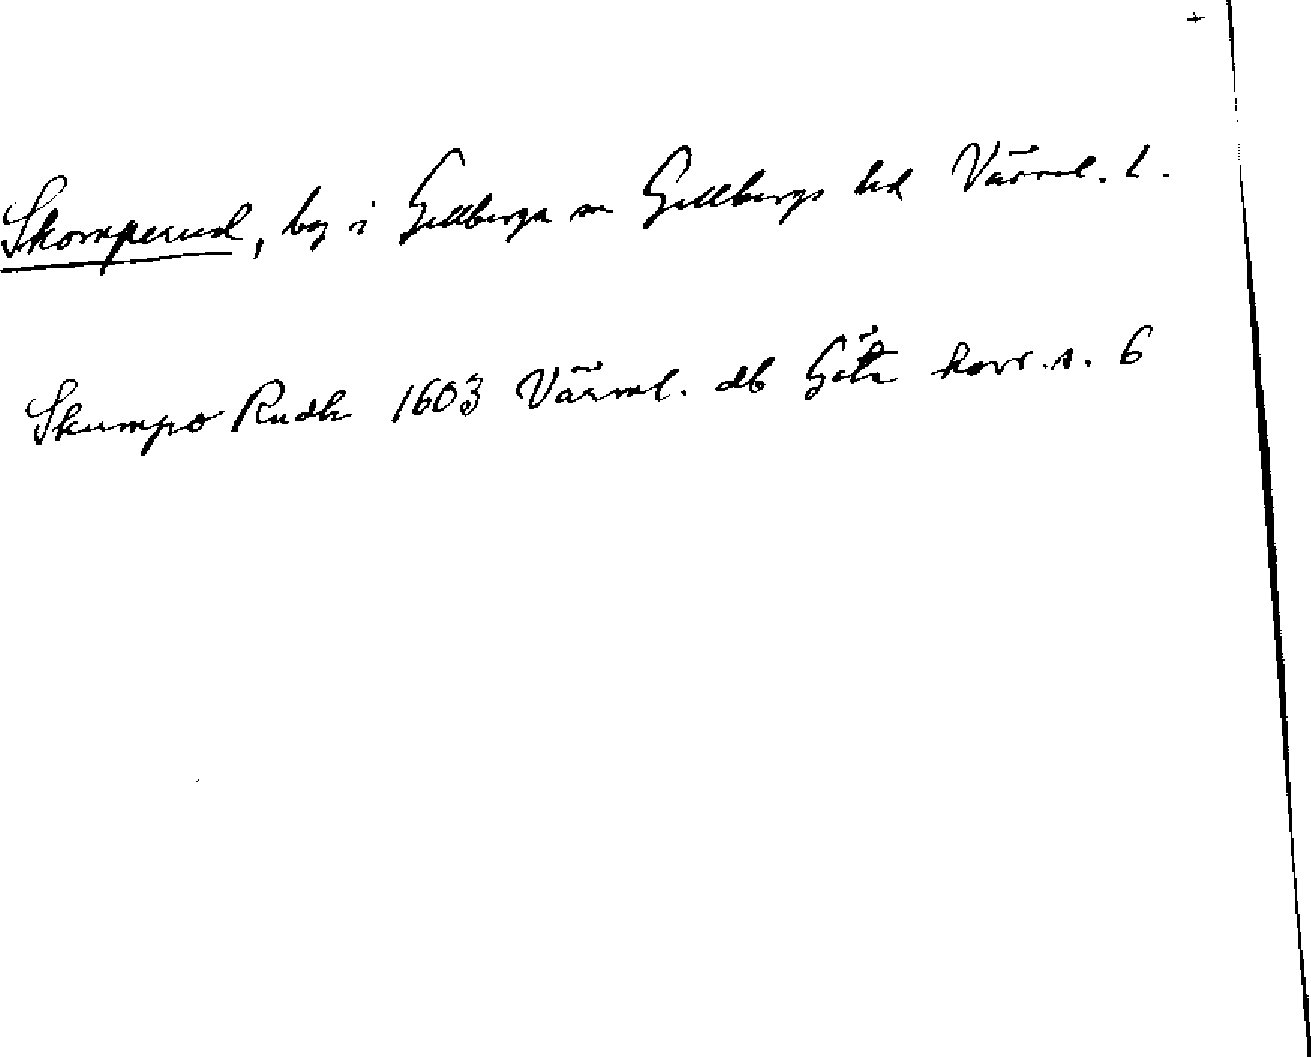 +
Skomperud, by i Gillberga sn Gillbergs hd Värml. l.
Skumpo Rudh 1603 Värml. db Göta hovr. s. 6